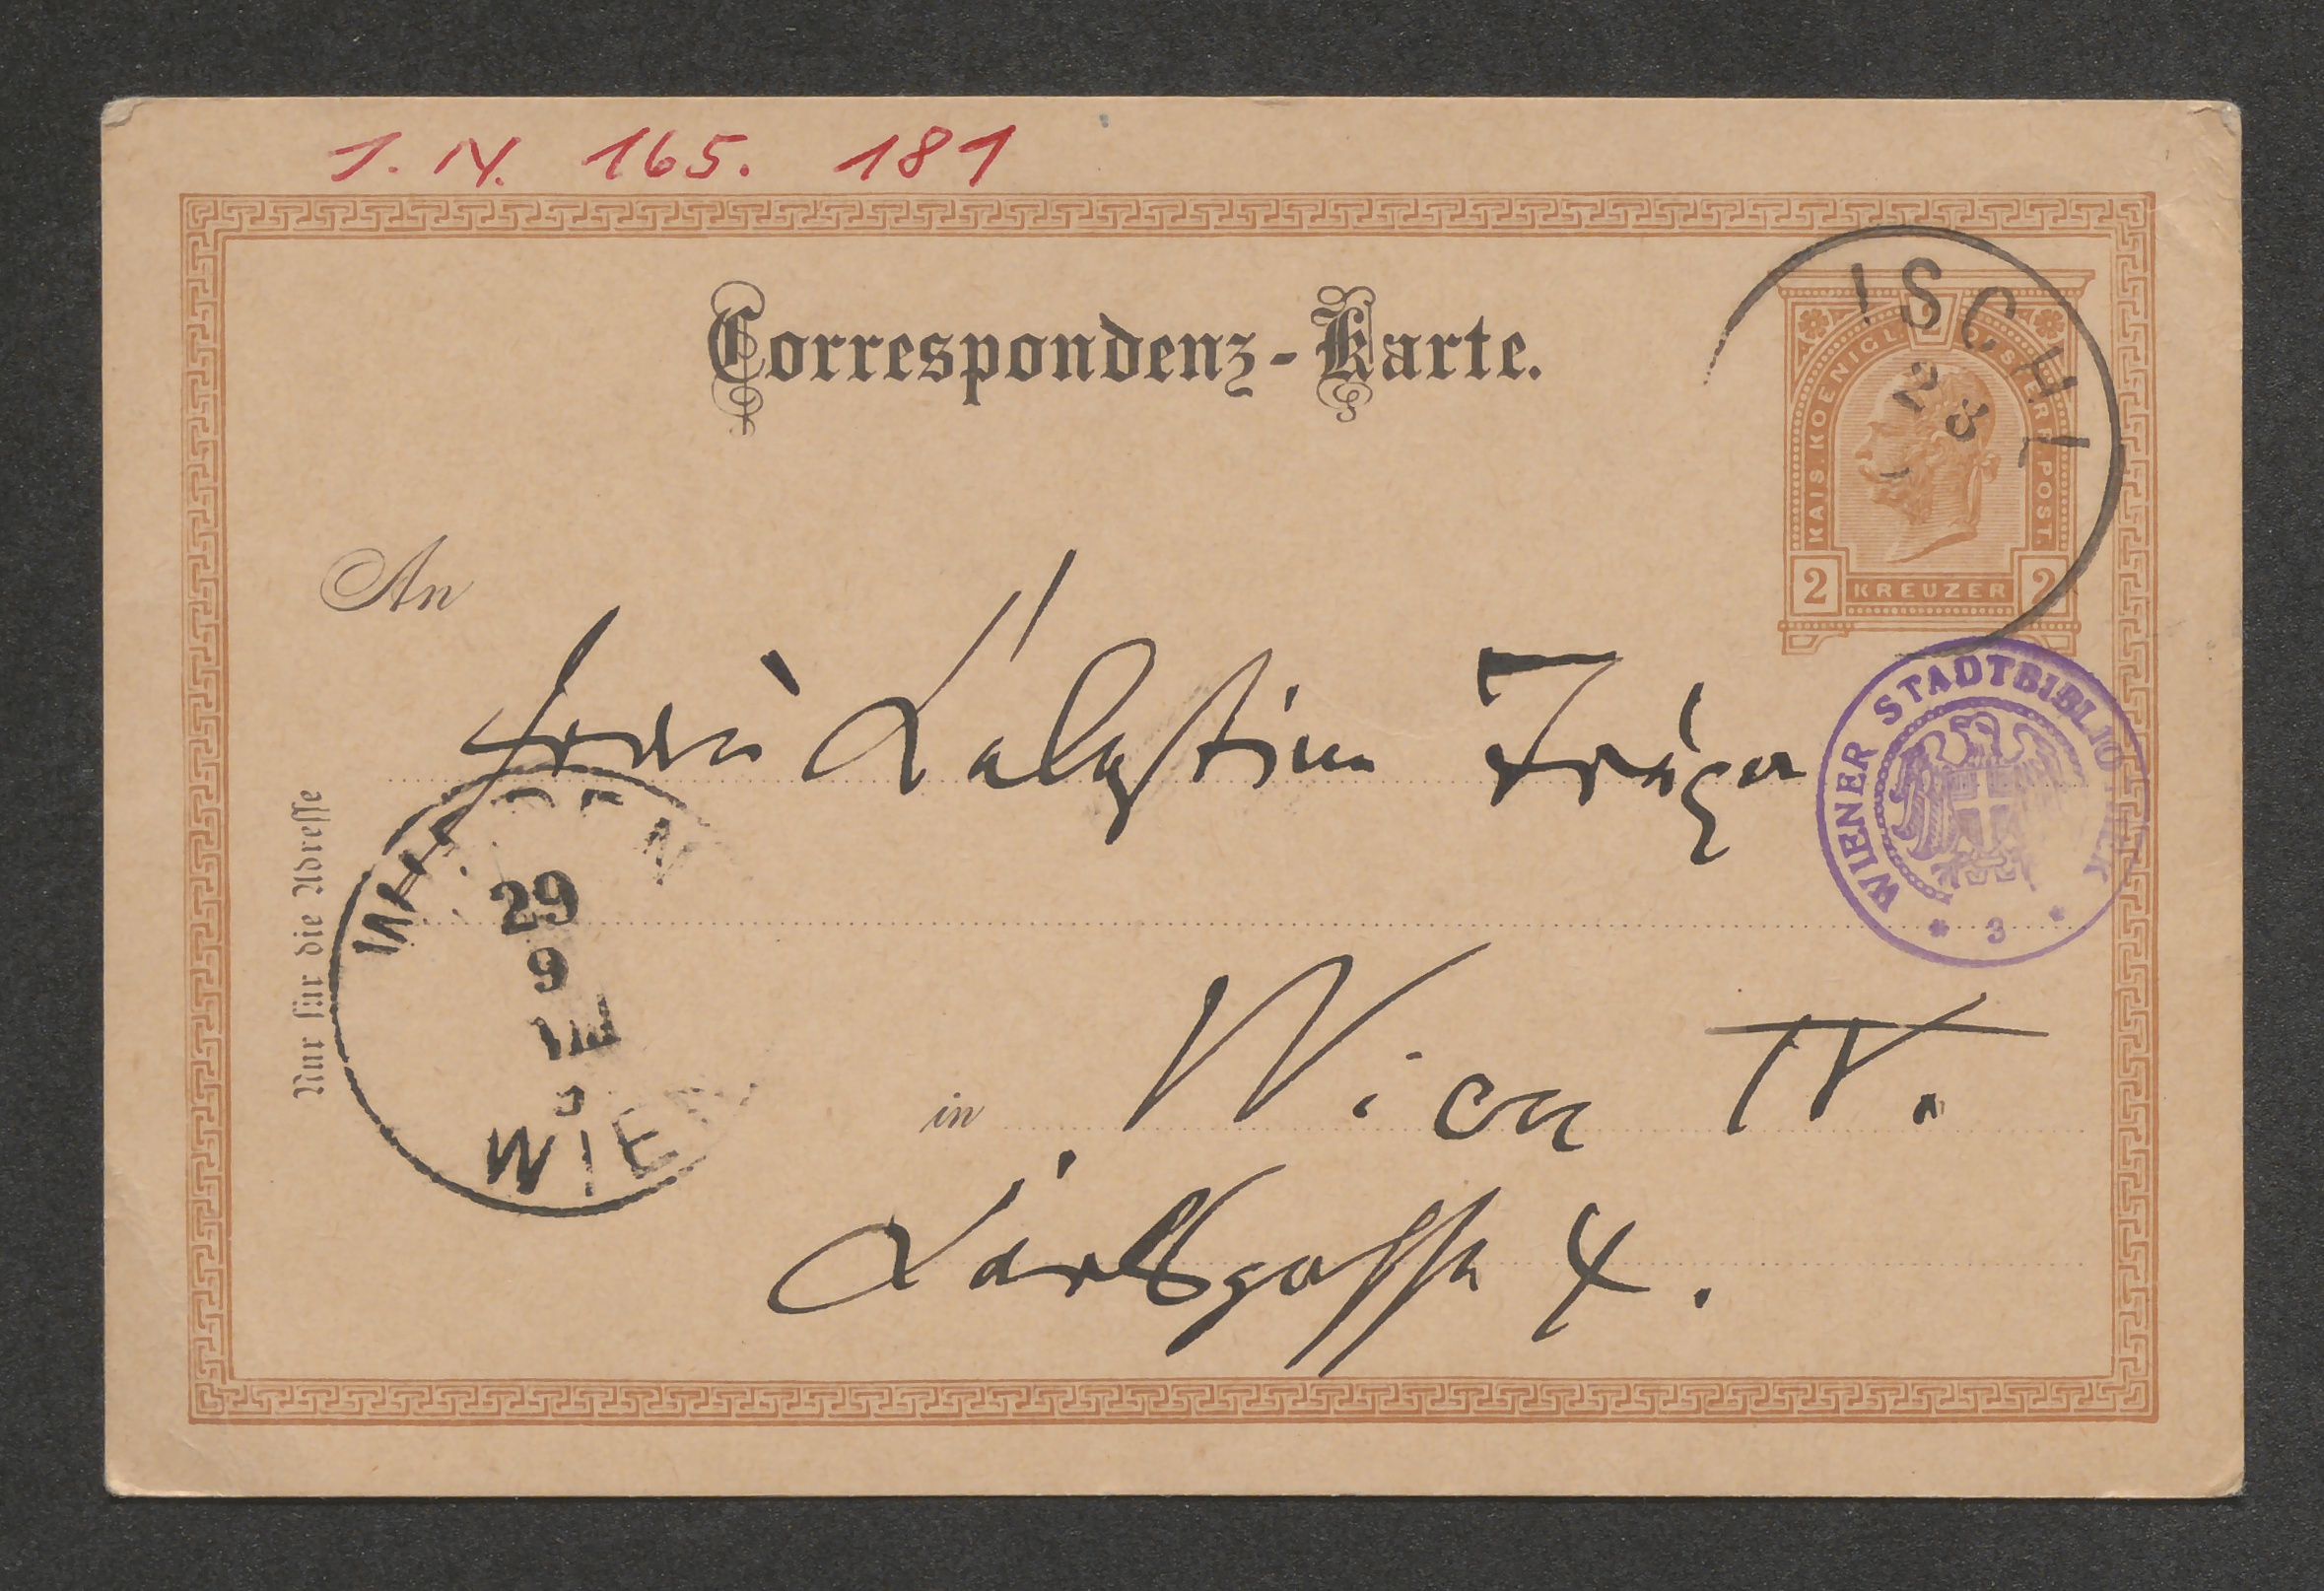 1. N. 165. 181
Correspondenz-Karte.
ISCHL
28
KAIS. KOENIGL. OESTERR. POST.
2 KREUZER 2
An
Frau Cölestine Truxa
WIENER STADTBIBLIOTHEK
* 3 *
Nur für die Adresse
29
9
WIEN
in Wien IV.
Carlsgasse 4.